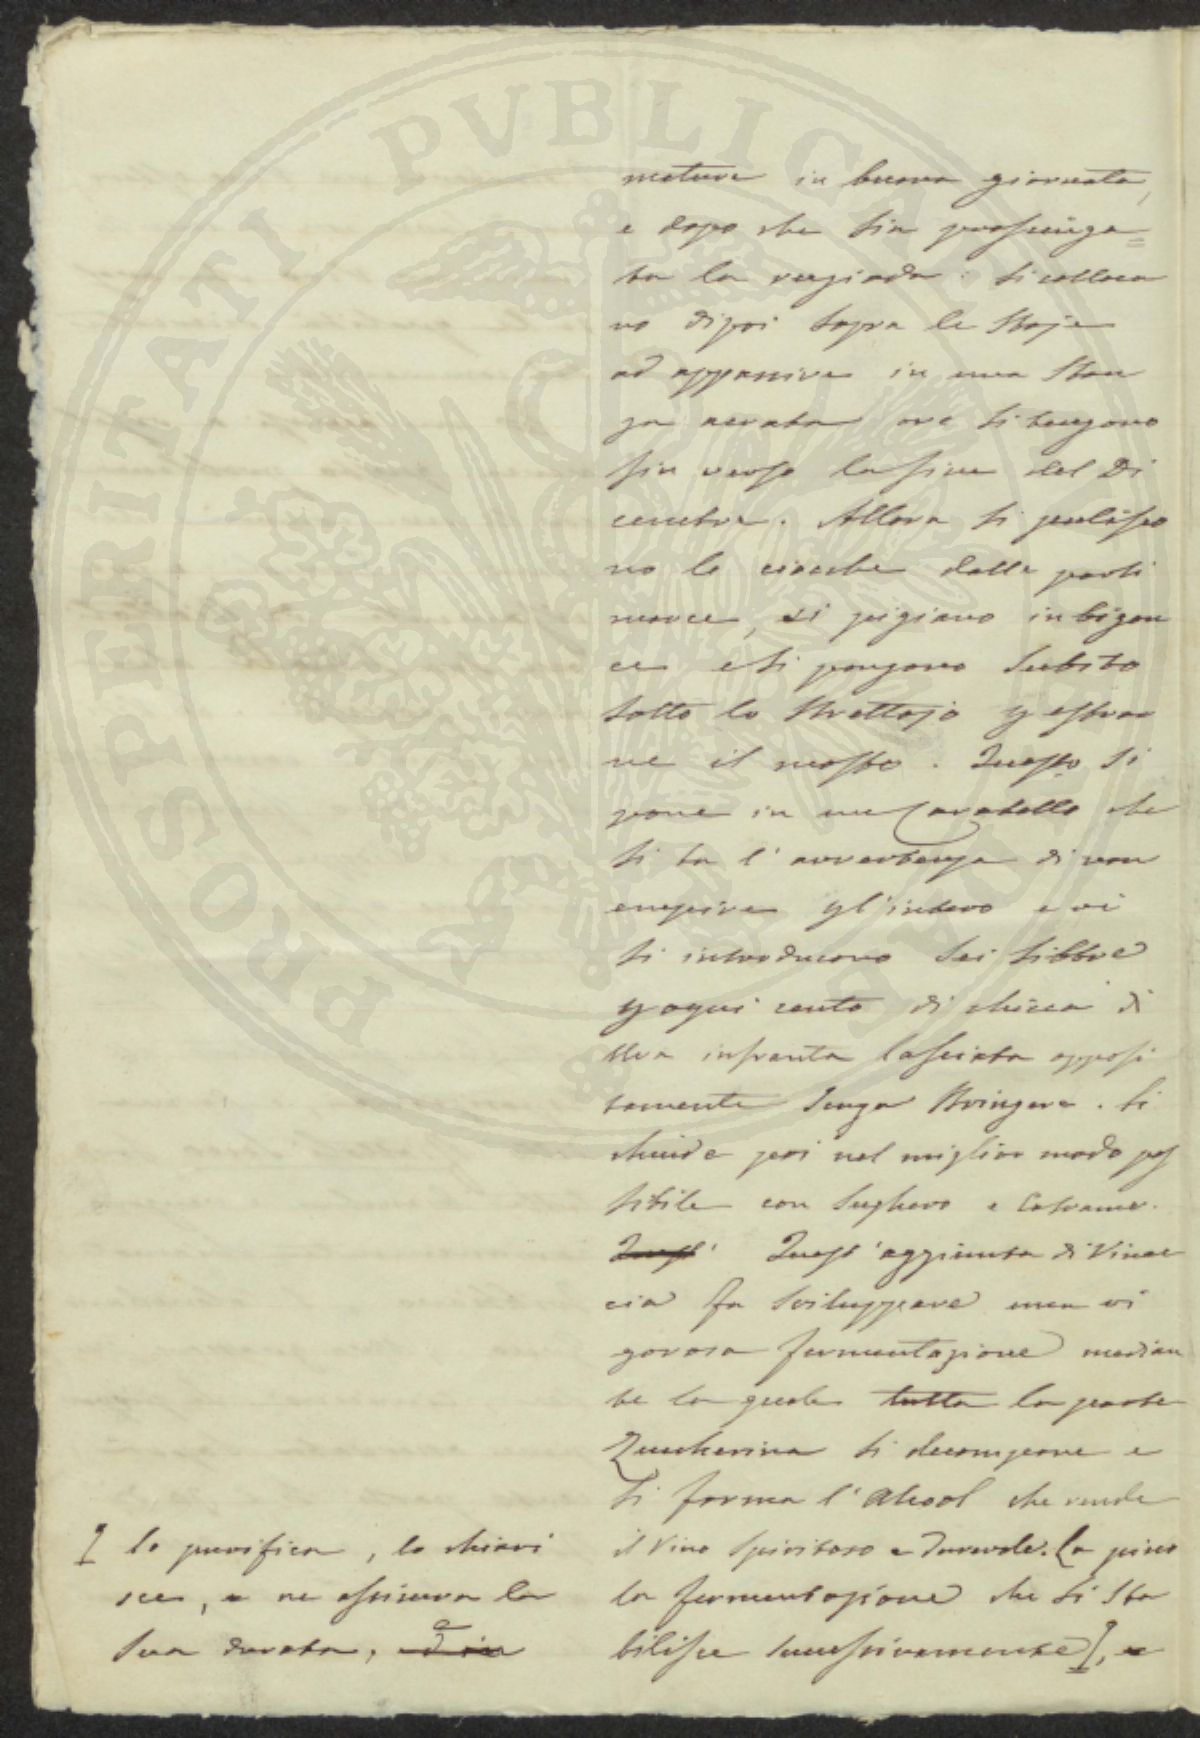 mature in buona giornata,
e dopo che sia prosciuga=
ta la rugiada: si colloca
no dipoi sopra le Stoje
ad appassire in una Stan
za aerata ove si tengono
sin verso la fine del Di
cembre. Allora si pulisco
no le ciocche dalle parti
marce, si pigiano in bigon
ce e si pongono Subito
sotto lo Strettojo p estrar
ne il mosto. Questo si
pone in un Caratello che
si ha l'avvertenza di non
empire pl'intero e vi
si introducono Sei libbre
p ogni cento di chicca di
Uva infranta lasciata apposi
tamente Senza Stringere. Si
chiude poi nel miglior modo pos
sibile con Sughero e Catrame.
Quest' Quest'aggiunta di Vinac
cia fa Sviluppare una vi
gorosa fermentazione median
te la quale tutta la parte
Zuccherina si decompone e
si forma l'Alcool che rende
il Vino Spiritoso e durevole. La picco
la fermentazione che si sta
bilisce successivamente [, e
[ lo purifica, lo chiari
sce, e ne assicura la
Sua durata,
PROSPERITATI PVBLICAE